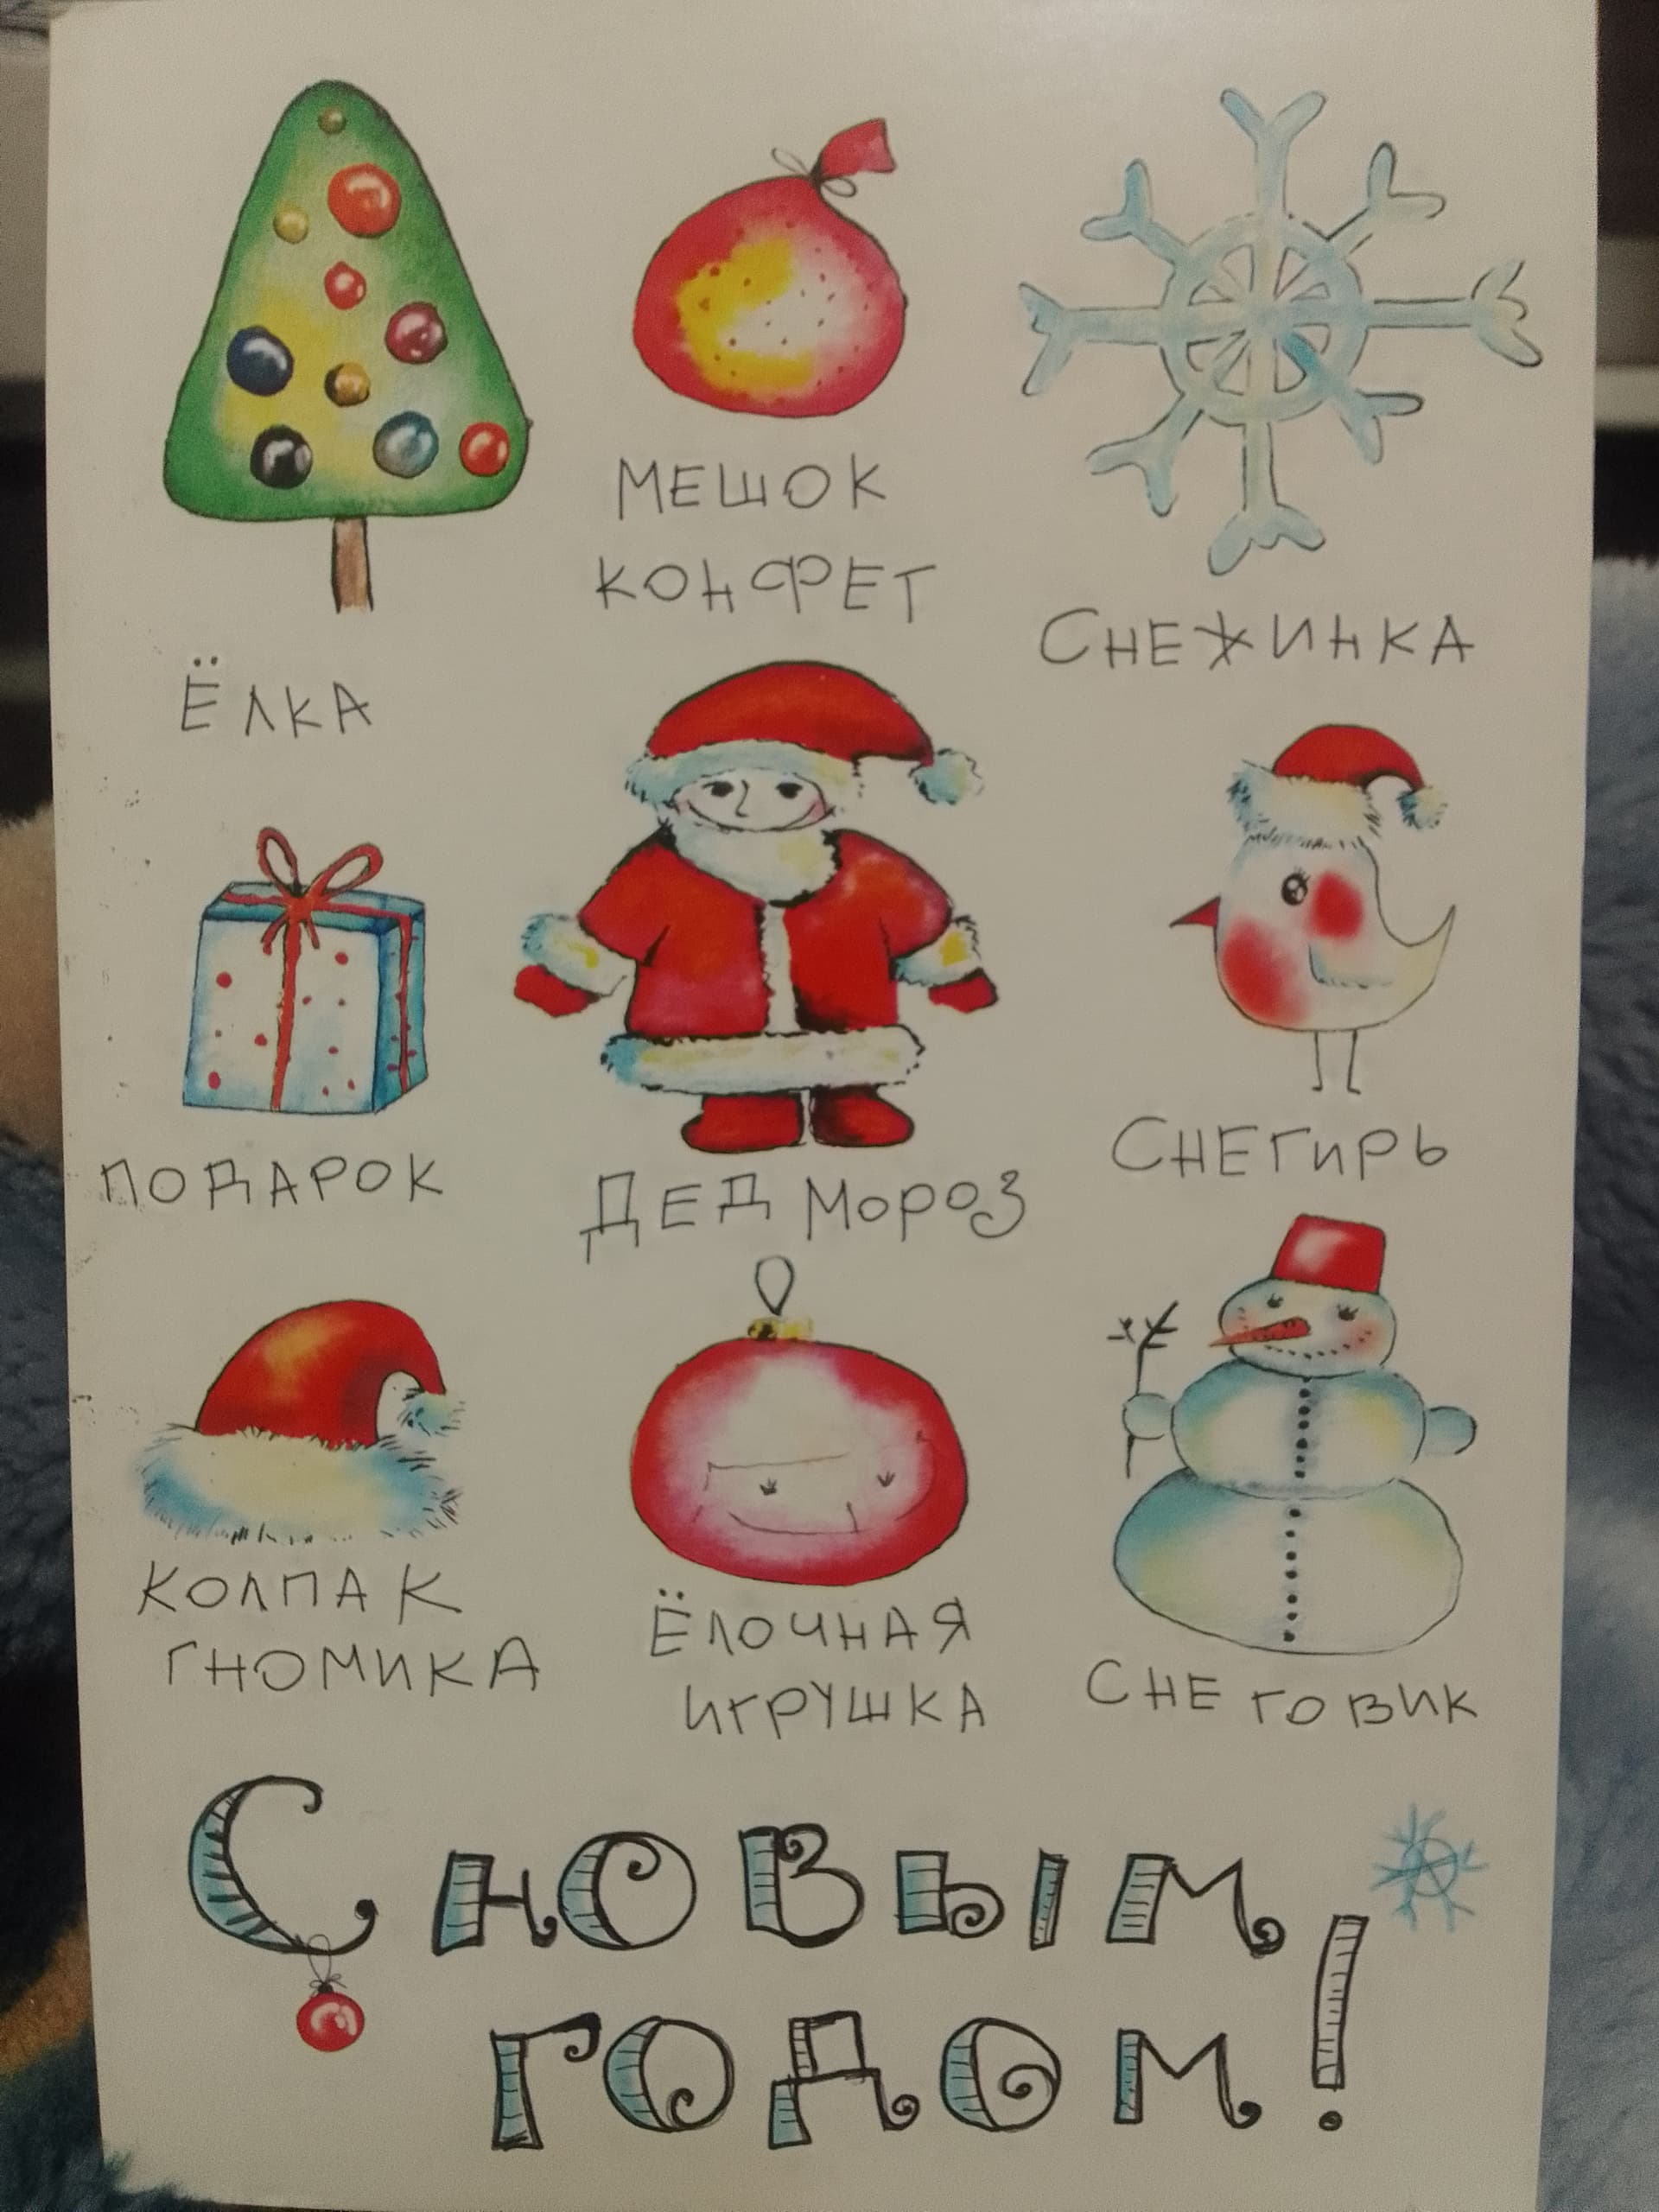 ЁЛКА
МЕШОК
КОНФЕТ
СНЕЖИНКА
ПОДАРОК
ДЕД МОРОЗ
СНЕГИРЬ
КОЛПАК
ГНОМИКА
ЁЛОЧНАЯ
ИГРУШКА
СНЕГОВИК
С НОВЫМ
ГОДОМ!